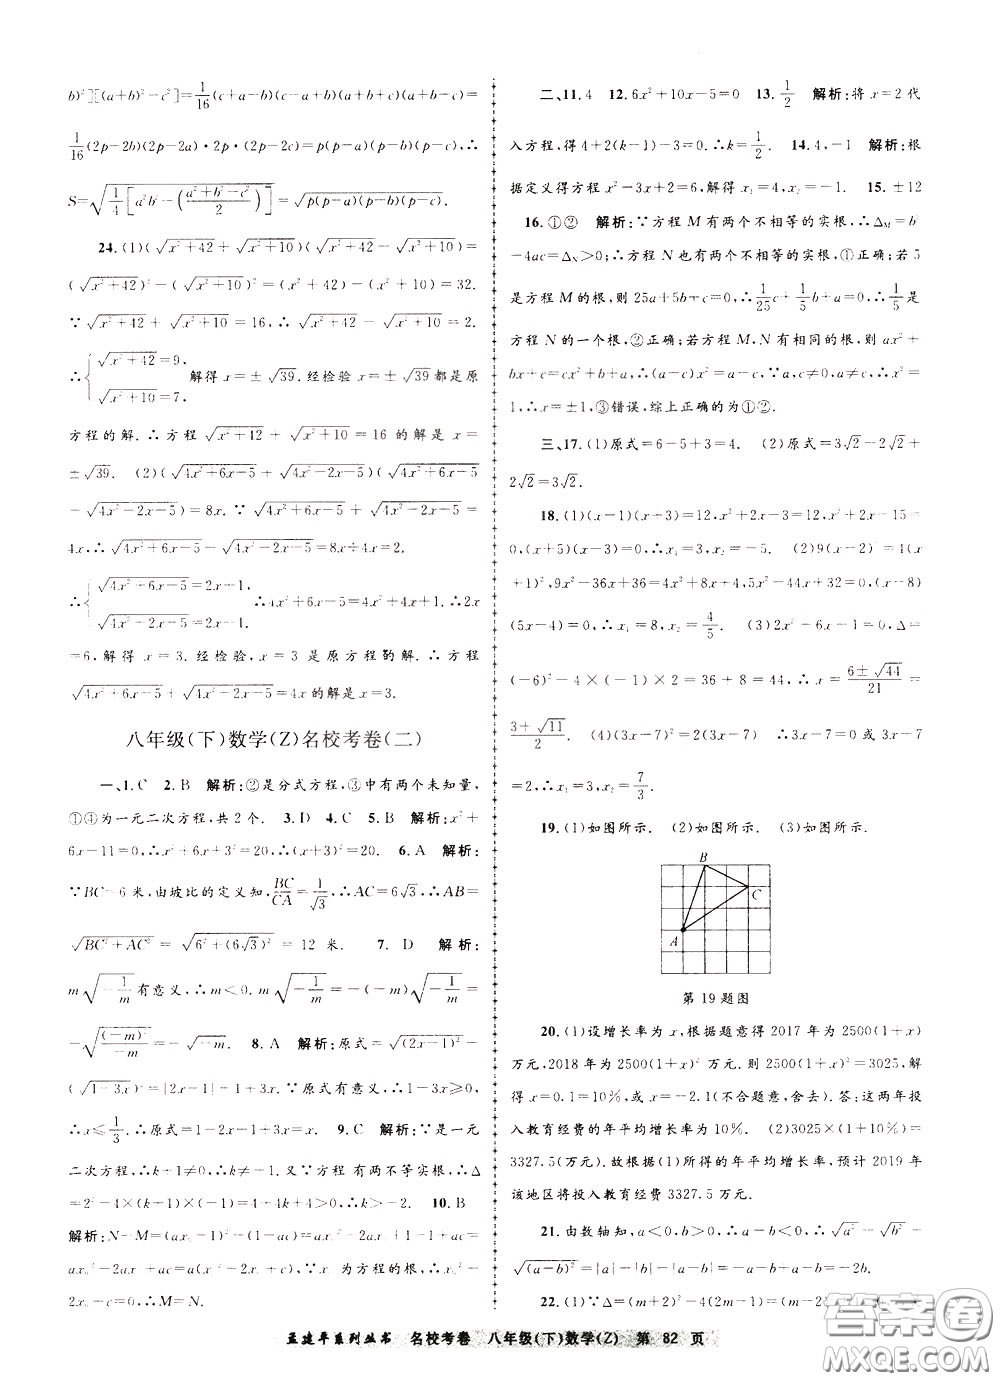 b)²][(a+b)²-c²]=1/16(c+a-b)(c-a+b)(a+b+c)(a+b-c)=
1/16(2p-2b)(2p-2a)·2p·(2p-2c)=p(p-a)(p-b)(p-c),∴
S=√(1/4[a²b²-((a²+b²-c²)/2)])=√(p(p-a)(p-b)(p-c)).
24.(1)(√(x²+42)+√(x²+10))(√(x²+42)-√(x²+10))=
(√(x²+42))²-(√(x²+10))²=(x²+42)-(x²+10)=32.
∵√(x²+42)+√(x²+10)=16,∴√(x²+42)-√(x²+10)=2.
∴{√(x²+42)=9, √(x²+10)=7, 解得x=±√39.经检验x=±√39都是原
方程的解.∴方程√(x²+42)+√(x²+10)=16的解是x=
±√39. (2)(√(4x²+6x-5)+√(4x²-2x-5))(√(4x²+6x-5)
-√(4x²-2x-5))=8x.∵√(4x²+6x-5)+√(4x²-2x-5)=
4x,∴√(4x²+6x-5)-√(4x²-2x-5)=2.
∴{√(4x²+6x-5)=2x+1, √(4x²-2x-5)=2x-1. ∴4x²+6x-5=4x²+4x+1.∴2x
=6,解得x=3.经检验,x=3是原方程的解.∴方程
√(4x²+6x-5)+√(4x²-2x-5)=4x的解是x=3.
八年级(下)数学(Z)名校考卷(二)
一、1.C 2.B 解析:②是分式方程,③中有两个未知量,
①④为一元二次方程,共2个. 3.D 4.C 5.B 解析:x²+
6x-11=0,∴x²+6x+3²=20,∴(x+3)²=20. 6.A 解析:
∵BC=6米,由坡比的定义知,BC/CA=1/√3,∴AC=6√3,∴AB=
√(BC²+AC²)=√(6²+(6√3)²)=12米. 7.D 解析:
m√(-1/m)有意义,∴m<0.m√(-1/m)=-(-m)√(-1/m)=
-√((-m)²/-m)=-√(-m). 8.A 解析:原式=√((2x-1)²)-
(√(1-3x))²=|2x-1|-|1-3x|.∵原式有意义,∴1-3x≥0,
∴x≤1/3.∴原式=1-2x-1+3x=x. 9.C 解析:∵是一元
二次方程,∴k-1≠0,∴k≠1.又∵方程有两不等实根,∴Δ
=2²-4×(k-1)×(-1)=4+4k-4>0,∴k>0. 10.B
解析:N-M=(ax₀-1)²-(2-ac)=a²x₀²-2ax₀+1-2+ac=
ax₀²-2ax₀-1+ac=a(x₀²-2x₀+c)-1,∵x₀为方程的根,∴x₀²-
2x₀-c=0,∴M=N.
二、11.4 12.6x²+10x-5=0 13.1/2 解析:将x=2代
入方程,得4+2(k-1)-3=0.∴k=1/2. 14.4,-1 解析:根
据定义得方程x²-3x+2=6,解得x₁=4,x₂=-1. 15.±12
16.①② 解析:∵方程M有两个不相等的实根,∴Δ_M=b²
-4ac=Δ_N>0;∴方程N也有两个不等的实根,①正确;若5
是方程M的根,则25a+5b+c=0,∴1/25c+1/5b+a=0,∴1/5是
方程N的一个根,②正确;若方程M、N有相同的根,则ax²+
bx+c=cx²+bx+a,∴(a-c)x²=a-c,∵a,c≠0,a≠c,∴x²=
1,∴x=±1,③错误,综上正确的为①②.
三、17.(1)原式=6-5+3=4. (2)原式=3√2-2√2+
2√2=3√2.
18.(1)(x-1)(x+3)=12,x²+2x-3=12,x²+2x-15=
0,(x+5)(x-3)=0,∴x₁=3,x₂=-5. (2)9(x-2)²=4(x
+1)²,9x²-36x+36=4x²+8x+4,5x²-44x+32=0,(x-8)
(5x-4)=0;∴x₁=8,x₂=4/5. (3)2x²-6x-1=0,Δ=
(-6)²-4×(-1)×2=36+8=44,∴x=(6±√44)/21=
(3±√11)/2. (4)(3x-7)²=(3x-7),∴3x-7=0或3x-7=
1,∴x₁=3,x₂=7/3.
19.(1)如图所示. (2)如图所示. (3)如图所示.
B
C
A
第19题图
20.(1)设增长率为x,根据题意得2017年为2500(1+x)
万元,2018年为2500(1+x)²万元.则2500(1+x)²=3025,解
得x=0.1=10%,或x=-2.1(不合题意,舍去).答:这两年投
入教育经费的年平均增长率为10%. (2)3025×(1+10%)=
3327.5(万元).故根据(1)所得的年平均增长率,预计2019年
该地区将投入教育经费3327.5万元.
21.由数轴知,a<0,b>0,∴a-b<0,∴√a²-√b²-
√((a-b)²)=|a|-|b|-|a-b|=(-a)-b+(a-b)=-2b.
22.(1)∵Δ=(m+2)²-4(2m-1)=(m-2)²+4>0,
孟建平系列丛书 名校考卷 八年级(下)数学(Z) 第 82 页
答案圈
MXQE.COM